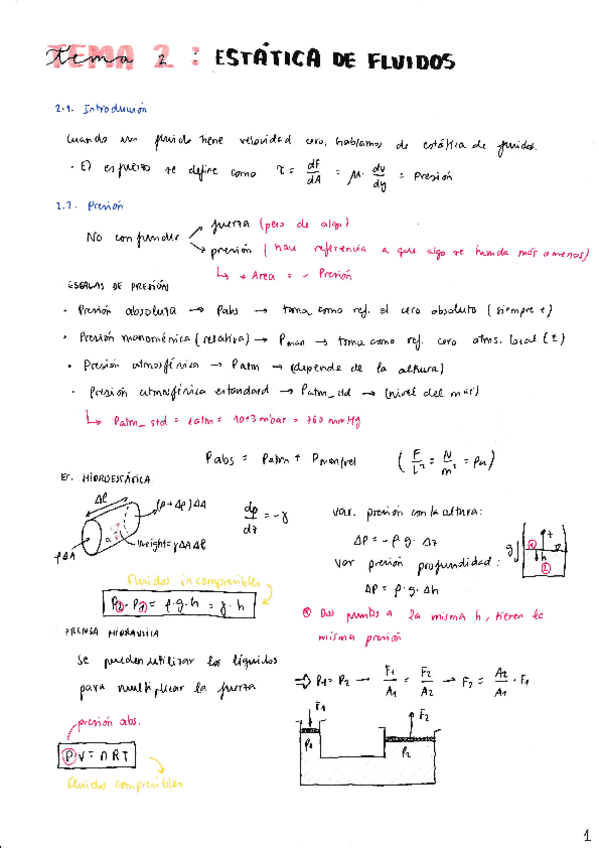 Tema 2 : ESTÁTICA DE FLUIDOS
2.1. Introducción
Cuando un fluido tiene velocidad cero, hablamos de estática de fluidos.
· El esfuerzo se define como τ = dF/dA = μ · dv/dy = Presión
2.2. Presión
No confundir
fuerza (peso de algo)
presión (hace referencia a que algo se hunda más o menos)
↳ + Area = - Presión
ESCALAS DE PRESIÓN
· Presión absoluta → Pabs → toma como ref. el cero absoluto (siempre +)
· Presión manométrica (relativa) → Pman → toma como ref. cero atms. local (±)
· Presión atmosférica → Patm → (depende de la altura)
· Presión atmosférica estandard → Patm_std → (nivel del mar)
↳ Patm_std = 1atm = 1013 mbar = 760 mmHg
Pabs = Patm + Pman/rel ( F/L² = N/m² = Pa )
EC. HIDROESTÁTICA
Δl
(p + Δp) ΔA
pΔA
α
Weight = γ ΔA Δl
dp/dz = -γ
var. presión con la altura:
ΔP = - ρ · g · Δz
var presión profundidad:
ΔP = ρ · g · Δh
g
z
1
h
2
Fluidos incompresibles
P2 - P1 = ρ · g · h = γ · h
Dos puntos a la misma h, tienen la
misma presión
PRENSA HIDRAULICA
Se pueden utilizar los líquidos
para multiplicar la fuerza
⇒ P1 = P2 → F1/A1 = F2/A2 → F2 = A2/A1 · F1
F1
F2
P1
P2
presión abs.
P · V = n R T
Fluidos compresibles
1